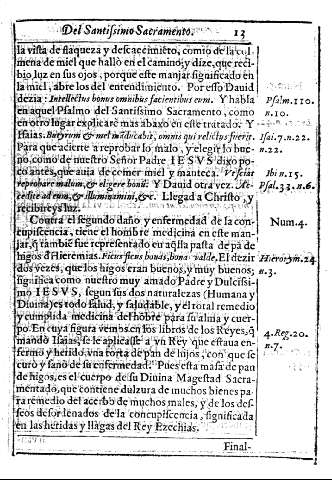 Del Santissimo Sacramento. 13
la vista de flaqueza y descaecimiẽto, comio de la col
mena de miel que hallò en el camino, y dize, que reci
bio luz en sus ojos, porque este manjar significado en
la miel, abre los del entendimiento. Por esso Dauid
dezia: Intellectus bonus omnibus facientibus eum. Y habla
en aquel Psalmo del Santissimo Sacramento, como
en otro lugar explicarè mas abaxo en este tratado. Y
Isaias. Butyrum & mel mãducabit, omnis qui relictus fuerit.
Para que acierte a reprobar lo malo, y elegir lo bue
no, como de nuestro Señor Padre IESVS dixo po
co antes, que auia de comer miel y manteca. Vt sciat
reprobare malum, & eligere bonũ. Y Dauid otra vez. Ac-
cedite ad eum, & illuminamini, &c. Llegad a Christo, y
recibireys luz.
Contra el segundo daño y enfermedad de la con
cupiscencia, tiene el hombre medicina en este man-
jar, q̃ tambiẽ fue representado en aq̃lla pasta de pã de
higos d̃ Hieremias. Ficus ficus bonas, bonas valde. El dezir
dos vezes, que los higos eran buenos, y muy buenos;
significa como nuestro muy amado Padre y Dulcissi-
mo IESVS, segun sus dos naturalezas (Humana y
Diuina) es todo salud, y saludable, y el total remedio
y cumplida medicina del hõbre para su alma y cuer-
po. En cuya figura vemos en los libros de los Reyes, q̃
mandò Isaias, se le aplicasse a vn Rey que estaua en-
fermo y herido, vna torta de pan de hijos, con que se
curo y sanò de su enfermedad. Pues esta masa de pan
de higos, es el cuerpo de su Diuina Magestad Sacra-
mentado, que contiene dulzura de muchos bienes pa
ra remedio del acerbo de muchos males, y de los des
seos desordenados de la concupiscencia, significada
en las heridas y llagas del Rey Ezechias.
Final-
Psalm. 110.
n. 10.
Isai. 7. n. 22.
n. 22.
Ibi n. 15.
Psal. 33. n. 6.
Num. 4.
Hierorym. 24
n. 3.
4. Reg. 20.
n. 7.